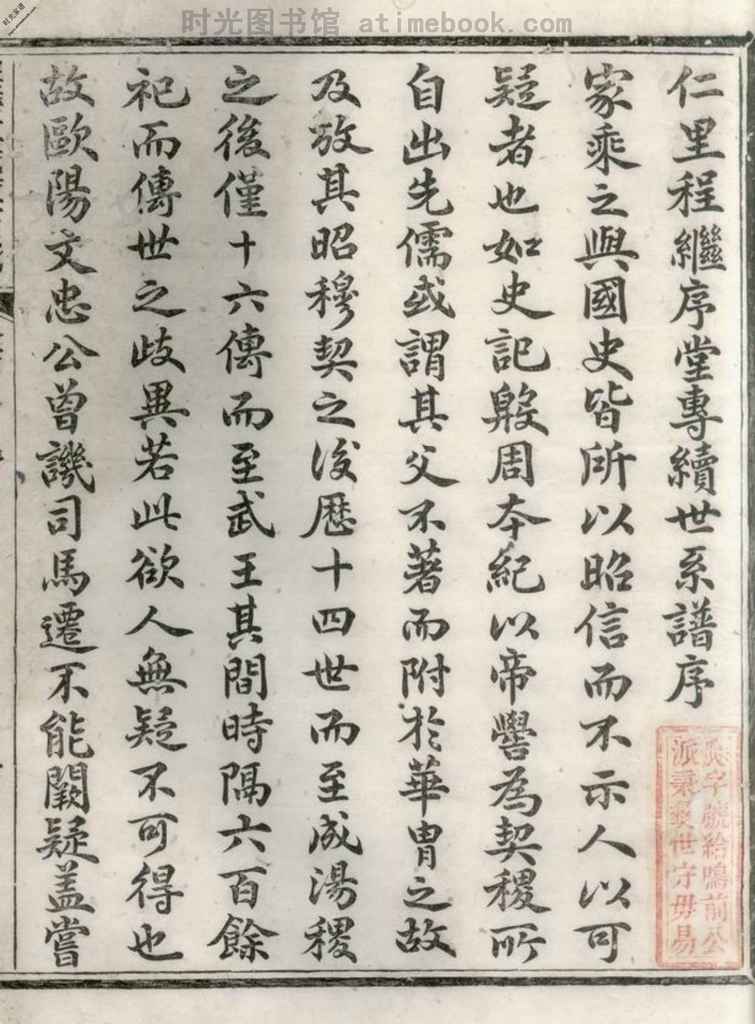 时光图书馆 atimebook.com
仁里程繼序堂專續世系譜序
家乘之與國史皆所以昭信而不示人以可
疑者也如史記殷周本紀以帝嚳為契稷所
自出先儒或謂其父不著而附於華胄之故
及攷其昭穆契之後歷十四世而至成湯稷
之後僅十六傳而至武王其間時隔六百餘
祀而傳世之歧異若此欲人無疑不可得也
故歐陽文忠公曾譏司馬遷不能闕疑盖嘗
字號給鳴前公
派秉燮世守毋易